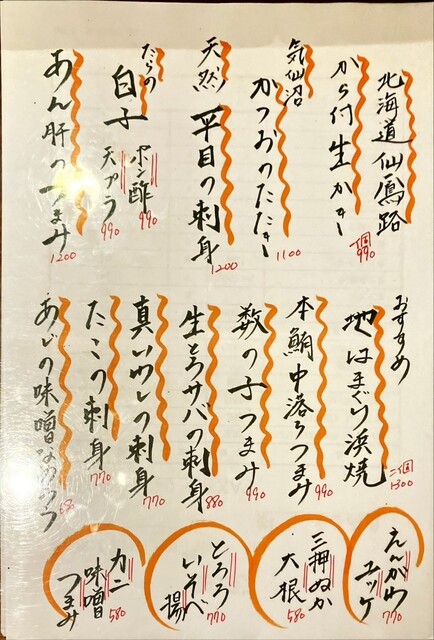 北海道仙鳳路
から付生かき
一個990
気仙沼
かつおのたたき
1100
天然
平目の刺身
1200
たらの
白子
ポン酢
990
天プラ
990
あん肝のつまみ
1200
おすすめ
地はまぐり浜焼
二個1300
本鮪中落ちつまみ
990
数の子つまみ
990
生とろサバの刺身
880
真いわしの刺身
770
たこの刺身
770
あじの味噌なめろう
680
えんがわ
ユッケ
770
三浦ぬか
大根
580
とろろ
いそべ
揚
770
カニ
味噌
つまみ
580